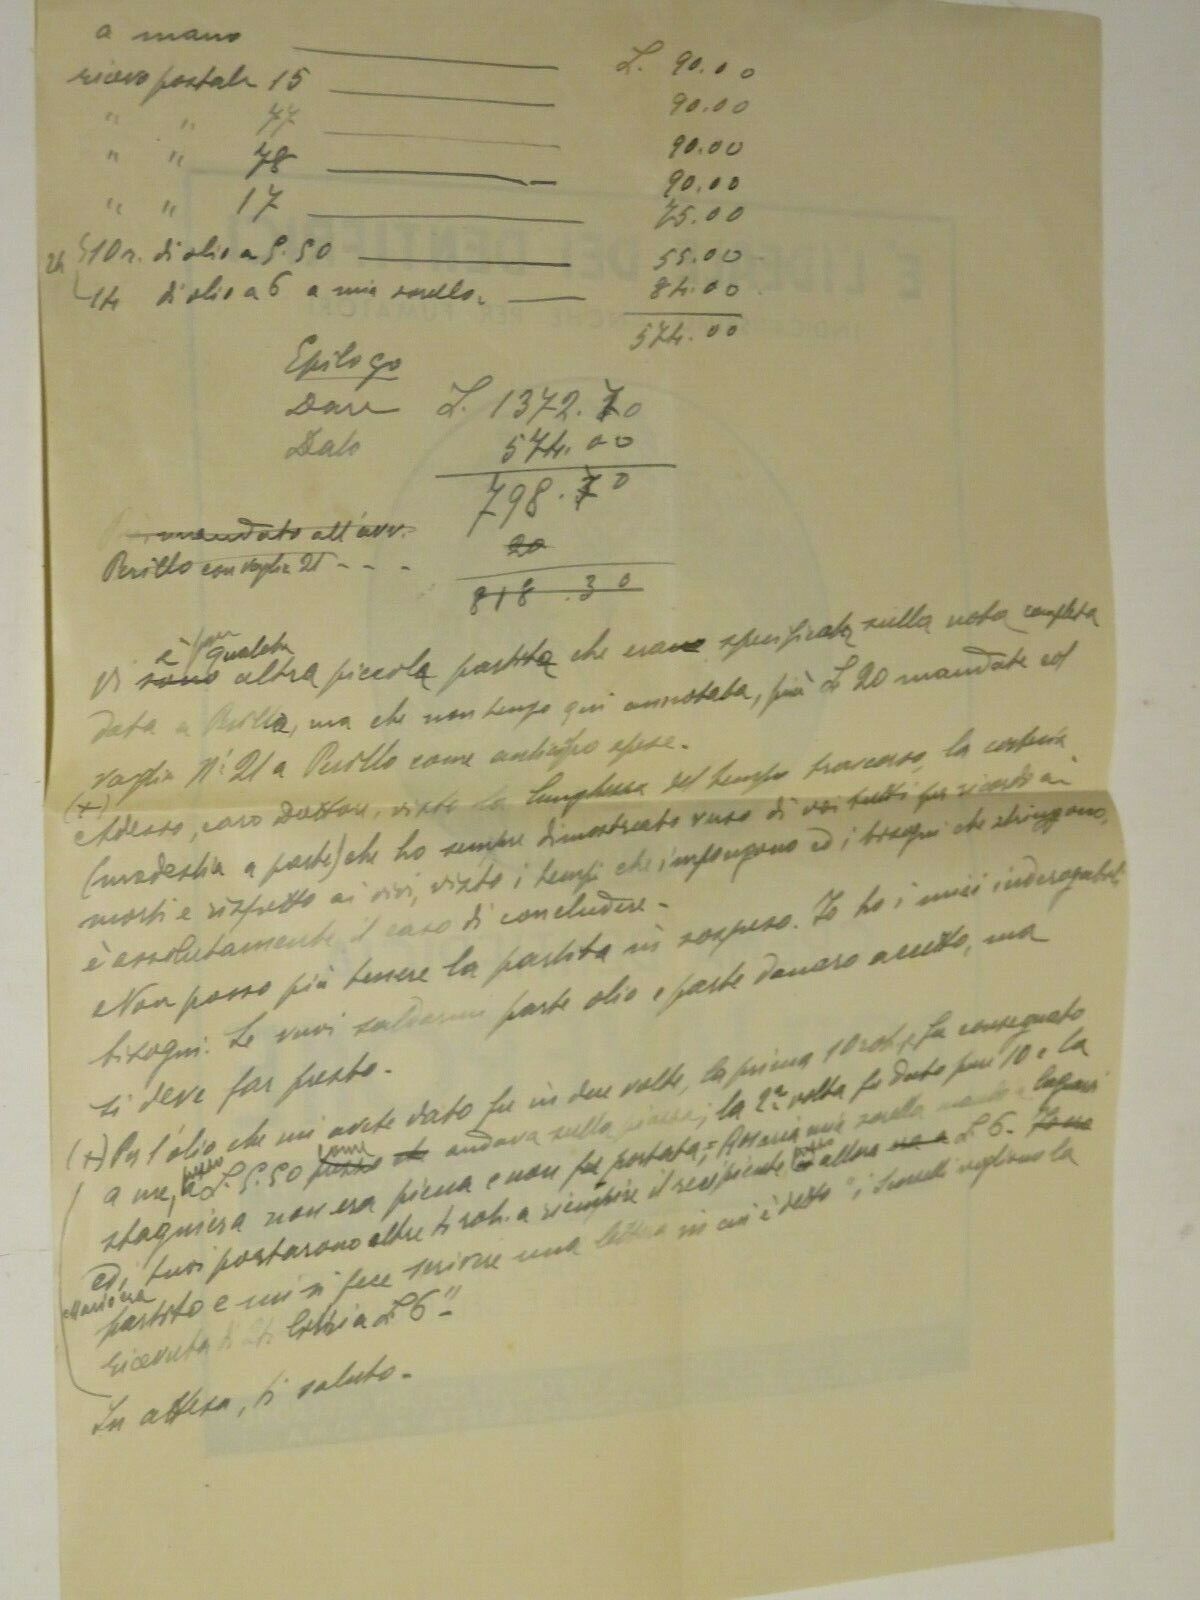 a mano L. 90.00
ricevo postale 15 90.00
" " 77 90.00
" " 78 90.00
" " 17 75.00
24 10 r. di olio a 5.50 55.00
14 di olio a 6 a mia sorella. 84.00
574.00
Epilogo
Dare L. 1372.70
Dato 574.00
798.70
mandato all'avv. 20
Perillo con vaglia 21 - - -
818.30
è qualche
Vi sono altra piccola partita che erano specificata sulla nota completa
data a Perillo, ma che non tengo qui annotata, più L 20 mandate col
vaglia N: 21 a Perillo come anticipo spese.
(+)
Adesso, caro Dottore, visto la lunghezza del tempo trascorso, la cortesia
(modestia a parte) che ho sempre dimostrato verso di voi tutti per ricordo ai
morti e rispetto ai vivi, visto i tempi che impongono ed i bisogni che stringono,
è assolutamente il caso di concludere.
Non posso più tenere la partita in sospeso. Io ho i miei inderogabili
bisogni. Se vuoi saldarmi parte olio e parte danaro accetto, ma
si deve far presto.
(+) Per l'olio che mi avete dato fu in due volte, la prima 10 rot. fu consegnato
a me, a L. 5.50 prezzo che andava sulla piazza; la 2ª volta fu dato pure 10 e la
stagniera non era piena e non fu portata; Rosaria mia sorella
ed i tuoi portarono altre 4 rot. a riempire il recipiente allora era a L 6.
partito e mi si fece scrivere una lettera in cui è detto "i vogliono la
ricevuta di 24 a L 6"
In attesa, ti saluto.